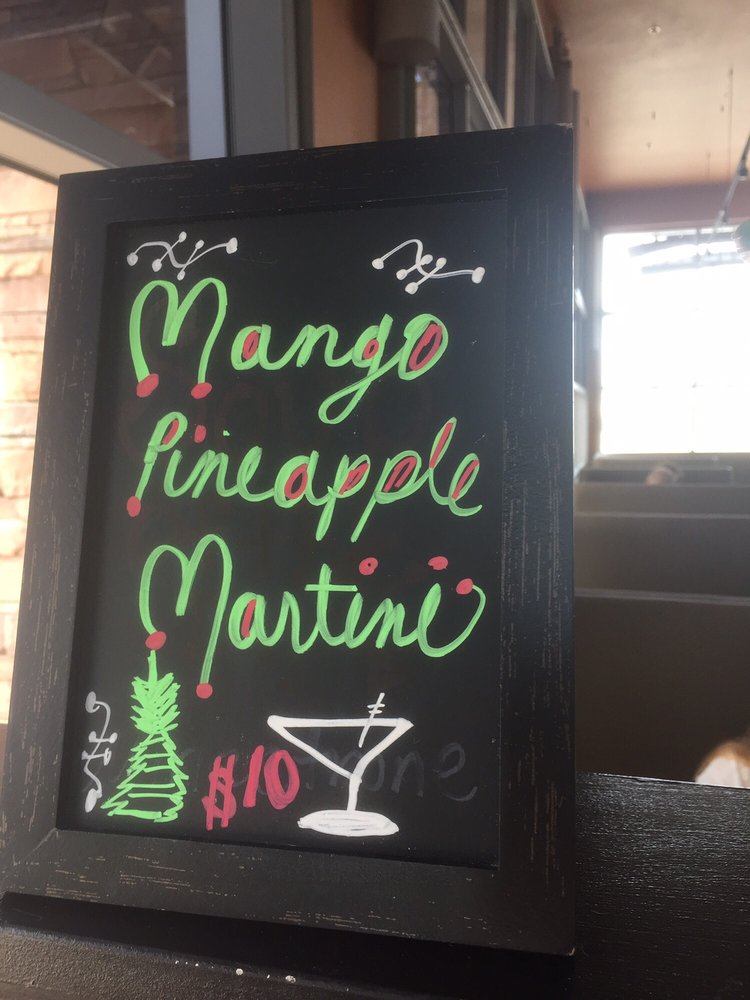 Mango
Pineapple
Martini
$10